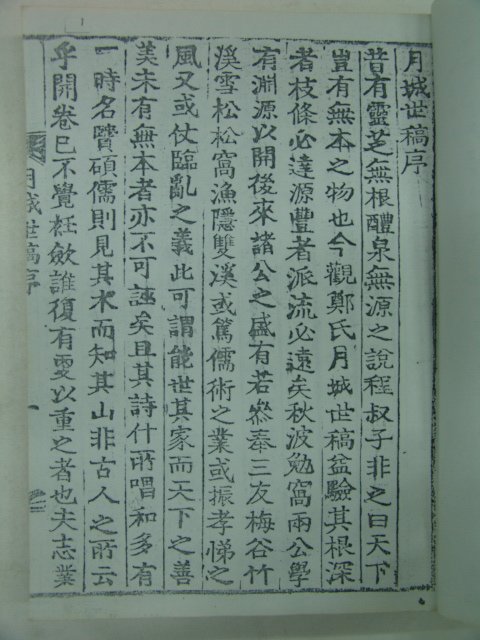 月城世稿序
昔有靈芝無根醴泉無源之說程叔子非之曰天下
豈有無本之物也今觀鄭氏月城世稿益驗其根深
者枝條必達源豐者派流必遠矣秋波勉窩兩公學
有淵源以開後來諸公之盛有若叅奉三友梅谷竹
溪雪松松窩漁隱雙溪或篤儒術之業或振孝悌之
風又或仗臨亂之義此可謂能世其家而天下之善
美未有無本者亦不可誣矣且其詩什所唱和多有
一時名賢碩儒則見其水而知其山非古人之所云
乎開卷已不覺袵斂誰復有雯以重之者也夫志業
月城世稿序
一